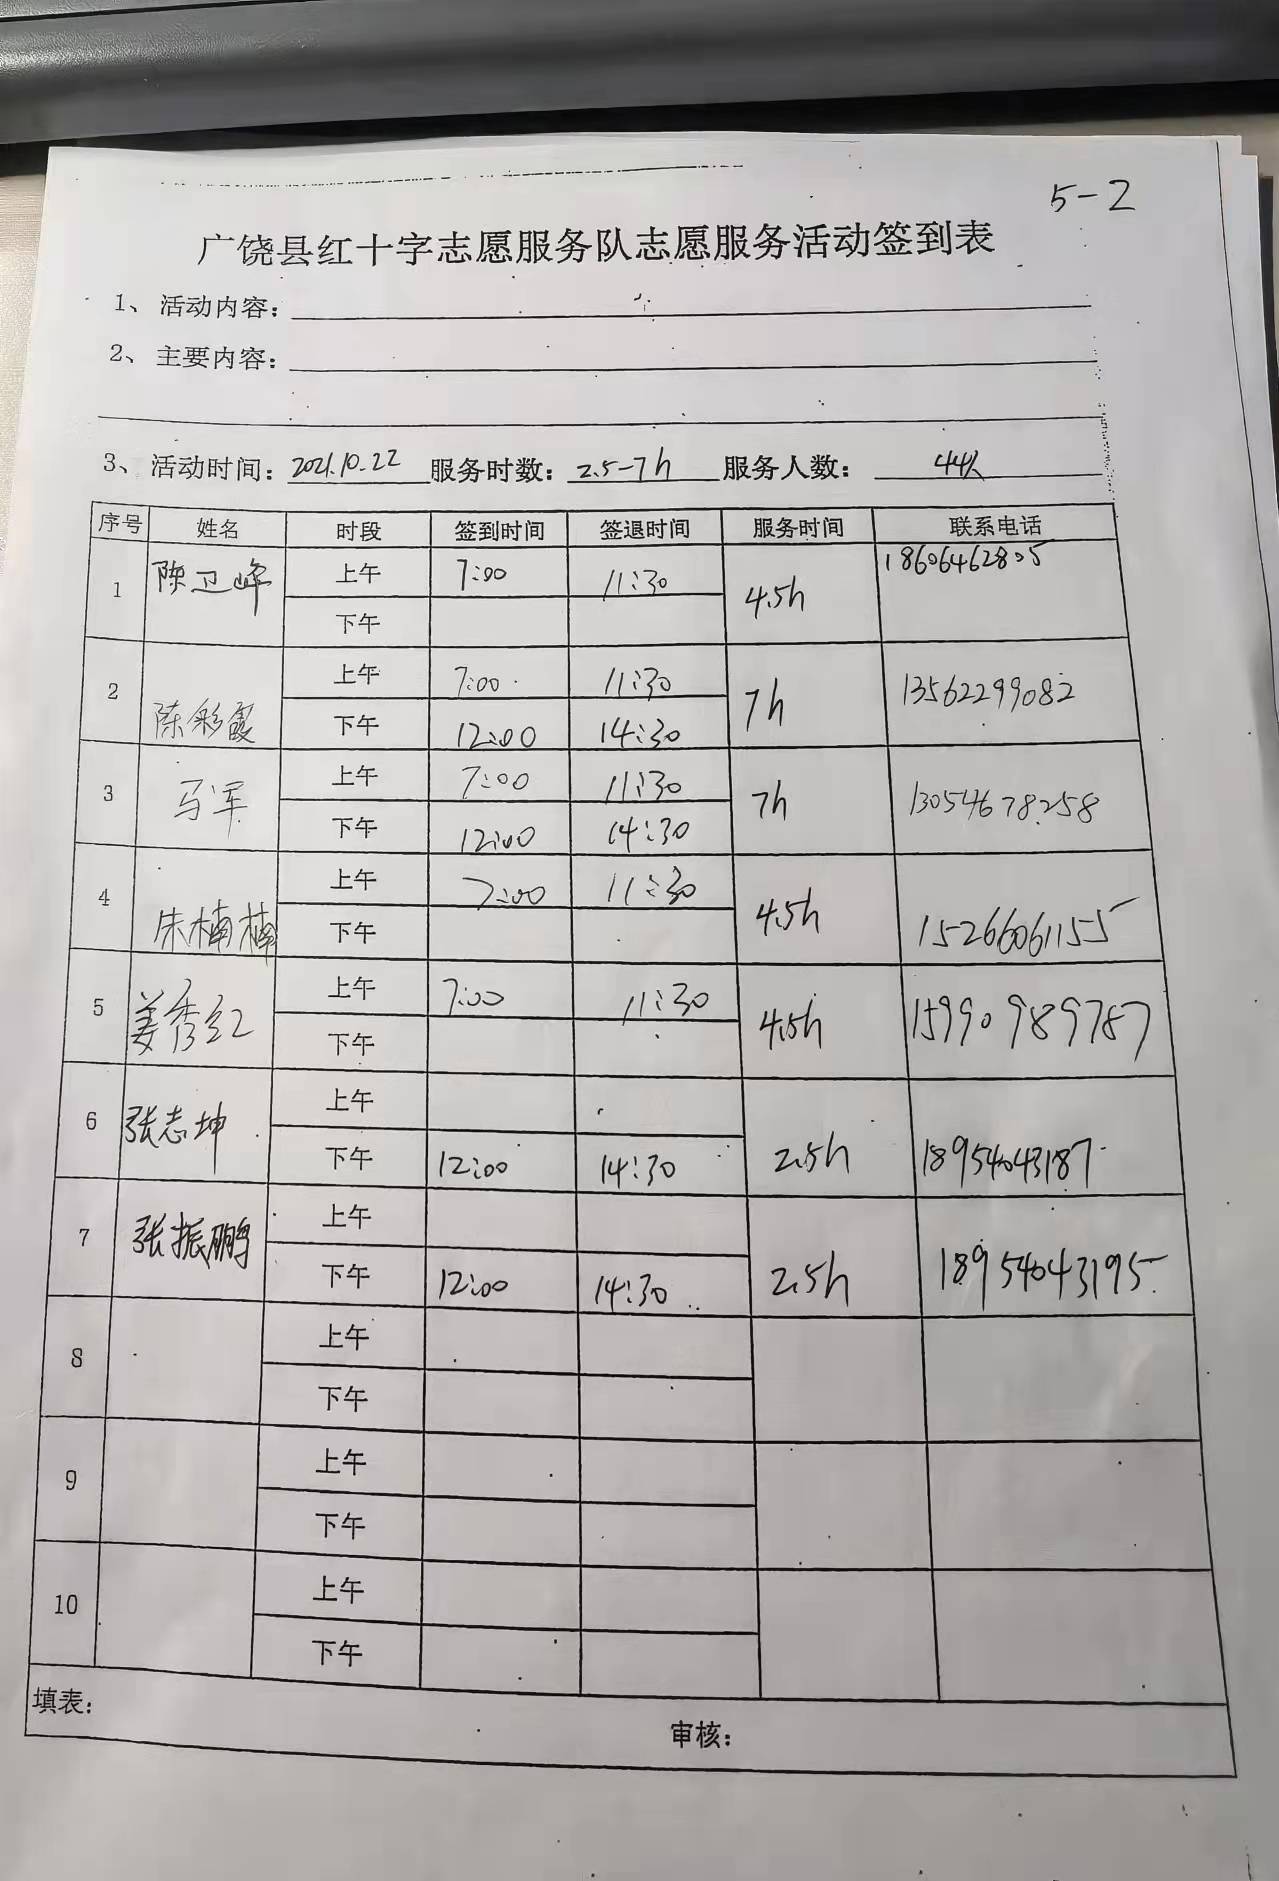 5-2
广饶县红十字志愿服务队志愿服务活动签到表
1、活动内容：
2、主要内容：
3、活动时间：2021.10.22 服务时数：2.5-7h 服务人数：44人
序号 姓名 时段 签到时间 签退时间 服务时间 联系电话
1 陈卫峰 上午 7:00 11:30 4.5h 18606462805
下午
2 陈彩霞 上午 7:00 11:30 7h 13562299082
下午 12:00 14:30
3 马军 上午 7:00 11:30 7h 13054678258
下午 12:00 14:30
4 朱楠楠 上午 7:00 11:30 4.5h 15266061155
下午
5 姜秀红 上午 7:00 11:30 4.5h 15990989787
下午
6 张志坤 上午
下午 12:00 14:30 2.5h 18954043187
7 张振鹏 上午
下午 12:00 14:30 2.5h 18954043195
8 上午
下午
9 上午
下午
10 上午
下午
填表： 审核：